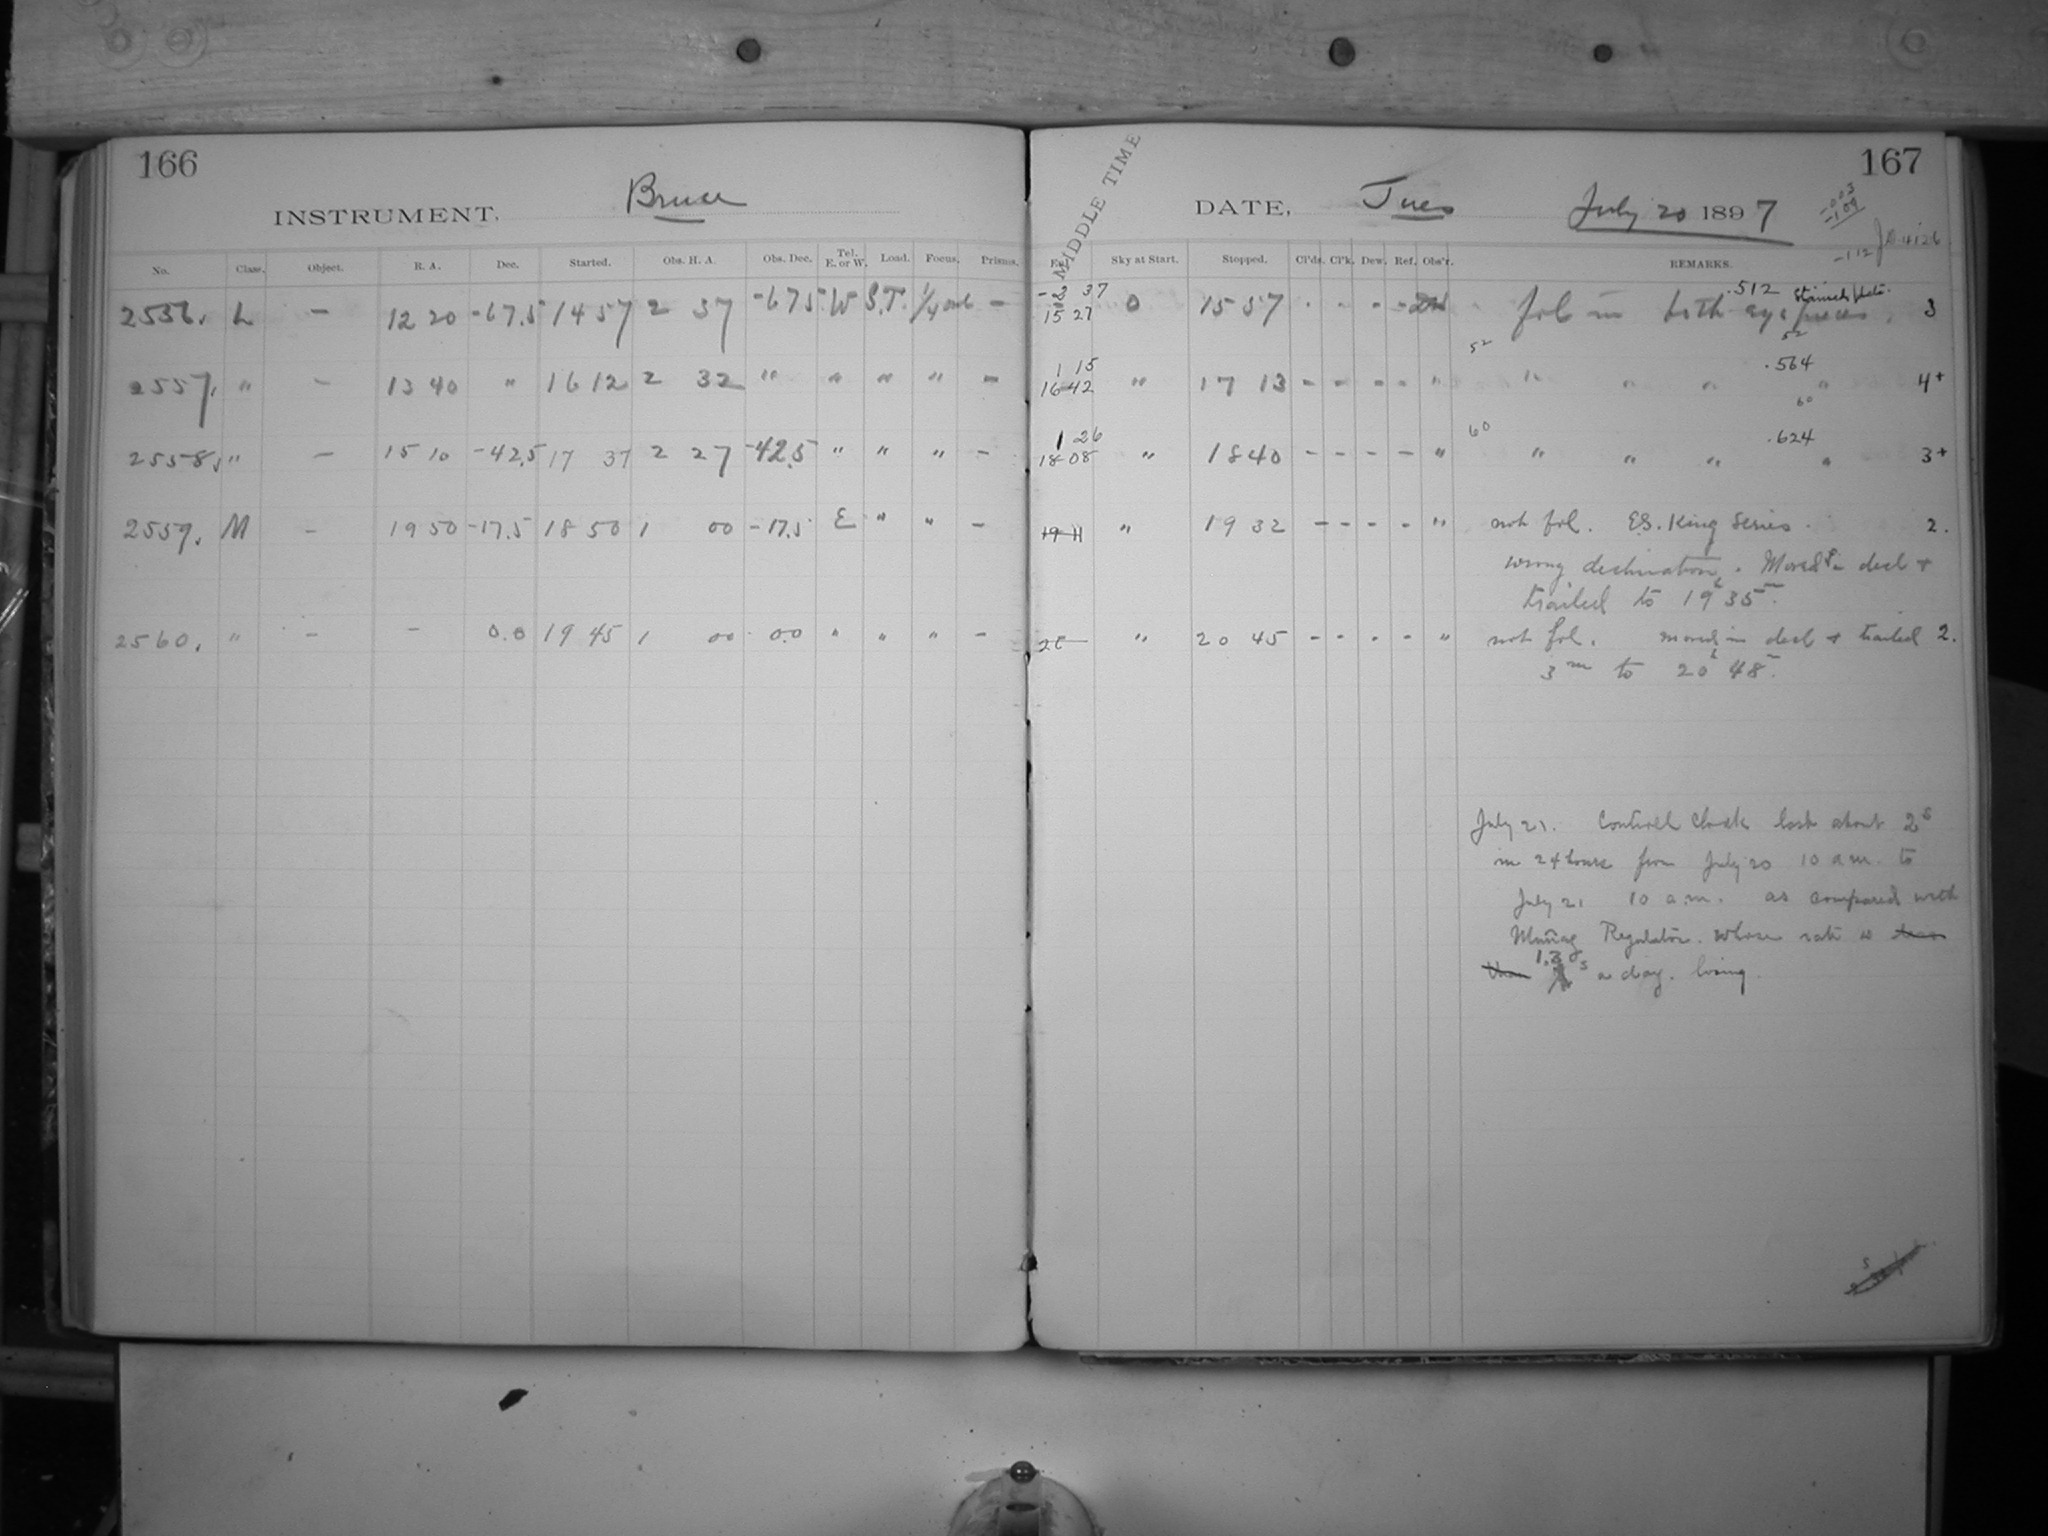 166
INSTRUMENT, Bruce
No. Class. Object. R. A. Dec. Started. Obs. H. A. Obs. Dec. Tel. E. or W. Load. Focus. Prisms.
2556. L – 12 20 -67.5 14 57 2 37 -67.5 W S.T. –
2557. " – 13 40 " 16 12 2 32 " " " " –
2558. " – 15 10 -42.5 17 37 2 27 -42.5 " " " –
2559. M – 19 50 -17.5 18 50 1 00 -17.5 E " " –
2560. " – – 0.0 19 45 1 00 0.0 " " " –
167
MIDDLE TIME
DATE, Tues July 20 1897
-.003
-.109
-.112 J.D. 4126
Sky at Start. Stopped. Cl'ds. Cl'k. Dew. Ref. Obs'r. REMARKS.
37
15 27 0 15 57 fol in both eye pieces. .512 3
52
52
1 15
16 42 " 17 13 – – – – " " " " .564 " 4+
60
60
1 26
18 08 " 18 40 – – – – " " " " .624 " 3+
19 11 " 19 32 – – – – " not fol. E.S. King Series. 2.
wrong declination. Moved in decl +
trailed to 19h 35m.
" 20 45 – – – – " not fol. moved in decl + trailed 2.
3m to 20h 48m.
July 21. Control Clock lost about 2s
in 24 hours from July 20 10 a.m. to
July 21 10 a.m. as compared with
Regulator. whose rate is
than 1.3s a day. losing.